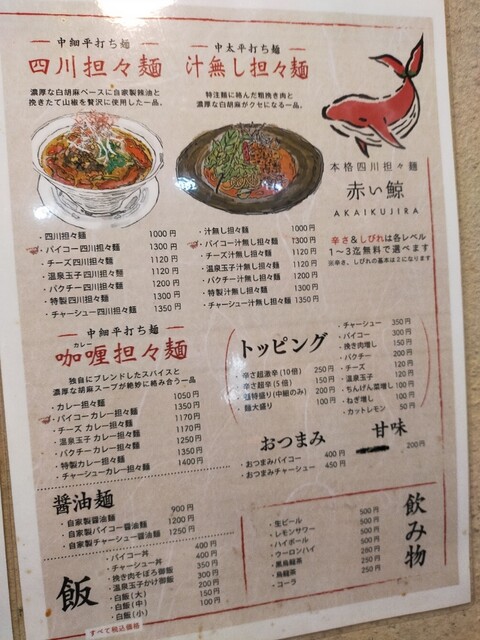 中細平打ち麺
四川担々麺
濃厚な白胡麻ベースに自家製辣油と
挽きたて山椒を贅沢に使用した一品。
・四川担々麺 1000円
・パイコー四川担々麺 1300円
・チーズ四川担々麺 1120円
・温泉玉子四川担々麺 1120円
・パクチー四川担々麺 1200円
・特製四川担々麺 1300円
・チャーシュー四川担々麺 1350円
中太平打ち麺
汁無し担々麺
特注麺に絡んだ粗挽き肉と
濃厚な白胡麻がクセになる一品。
・汁無し担々麺 1000円
・パイコー汁無し担々麺 1300円
・チーズ汁無し担々麺 1120円
・温泉玉子汁無し担々麺 1120円
・パクチー汁無し担々麺 1200円
・特製汁無し担々麺 1300円
・チャーシュー汁無し担々麺 1350円
本格四川担々麺
赤い鯨
AKAIKUJIRA
辛さ&しびれは各レベル
1〜3迄無料で選べます
※辛さ、しびれの基本は2になります
中細平打ち麺
カレー
咖喱担々麺
独自にブレンドしたスパイスと
濃厚な胡麻スープが絶妙に絡み合う一品
・カレー担々麺 1050円
・パイコーカレー担々麺 1350円
・チーズ カレー担々麺 1170円
・温泉玉子 カレー担々麺 1170円
・パクチー カレー担々麺 1250円
・特製カレー担々麺 1350円
・チャーシューカレー担々麺 1400円
トッピング
・辛さ超激辛(10倍) 250円
・辛さ超辛(5倍) 150円
・麺特盛り(中細のみ) 200円
・麺大盛り 100円
・チャーシュー 350円
・パイコー 300円
・挽き肉増し 150円
・パクチー 200円
・チーズ 120円
・温泉玉子 120円
・ちんげん菜増し 100円
・ねぎ増し 100円
・カットレモン 50円
おつまみ
・おつまみパイコー 400円
・おつまみチャーシュー 450円
甘味
200円
醤油麺
・自家製醤油麺 900円
・自家製パイコー醤油麺 1200円
・自家製チャーシュー醤油麺 1250円
飯
・パイコー丼 400円
・チャーシュー丼 400円
・挽き肉そぼろ御飯 350円
・温泉玉子かけ御飯 300円
・白飯(大) 200円
・白飯(中) 150円
・白飯(小) 100円
飲み物
・生ビール 500円
・レモンサワー 500円
・ハイボール 500円
・ウーロンハイ 500円
・黒烏龍茶 280円
・烏龍茶 250円
・コーラ 250円
すべて税込価格